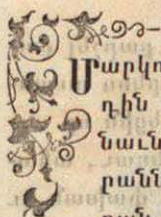 Մարկո
դին
նաւն
րանն